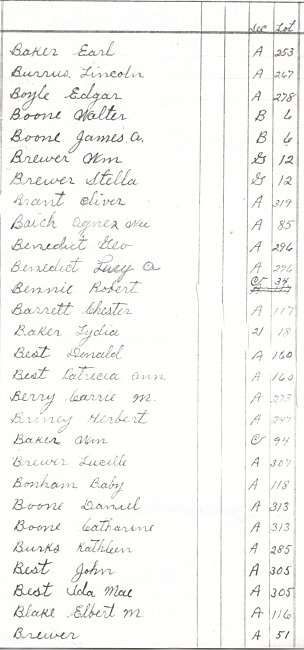 Sec Lot
Baker Earl A 253
Burrus Lincoln A 267
Boyle Edgar A 278
Boone Walter B 6
Boone James A. B 6
Brewer Wm G 12
Brewer Stella G 12
Brant Oliver A 319
Baich Agnes Mae A 85
Benedict Geo A 296
Benedict Lucy A A 296
Bennie Robert 34
Barrett Chester A 117
Baker Lydia 21 18
Best Donald A 160
Best Patricia Ann A 160
Berry Carrie M. A 273
Briney Herbert A 247
Baker Wm 94
Brewer Lucille A 307
Bonham Baby A 118
Boone Daniel A 313
Boone Catharine A 313
Burks Kathleen A 285
Best John A 305
Best Ida Mae A 305
Blake Elbert M A 116
Brewer A 51